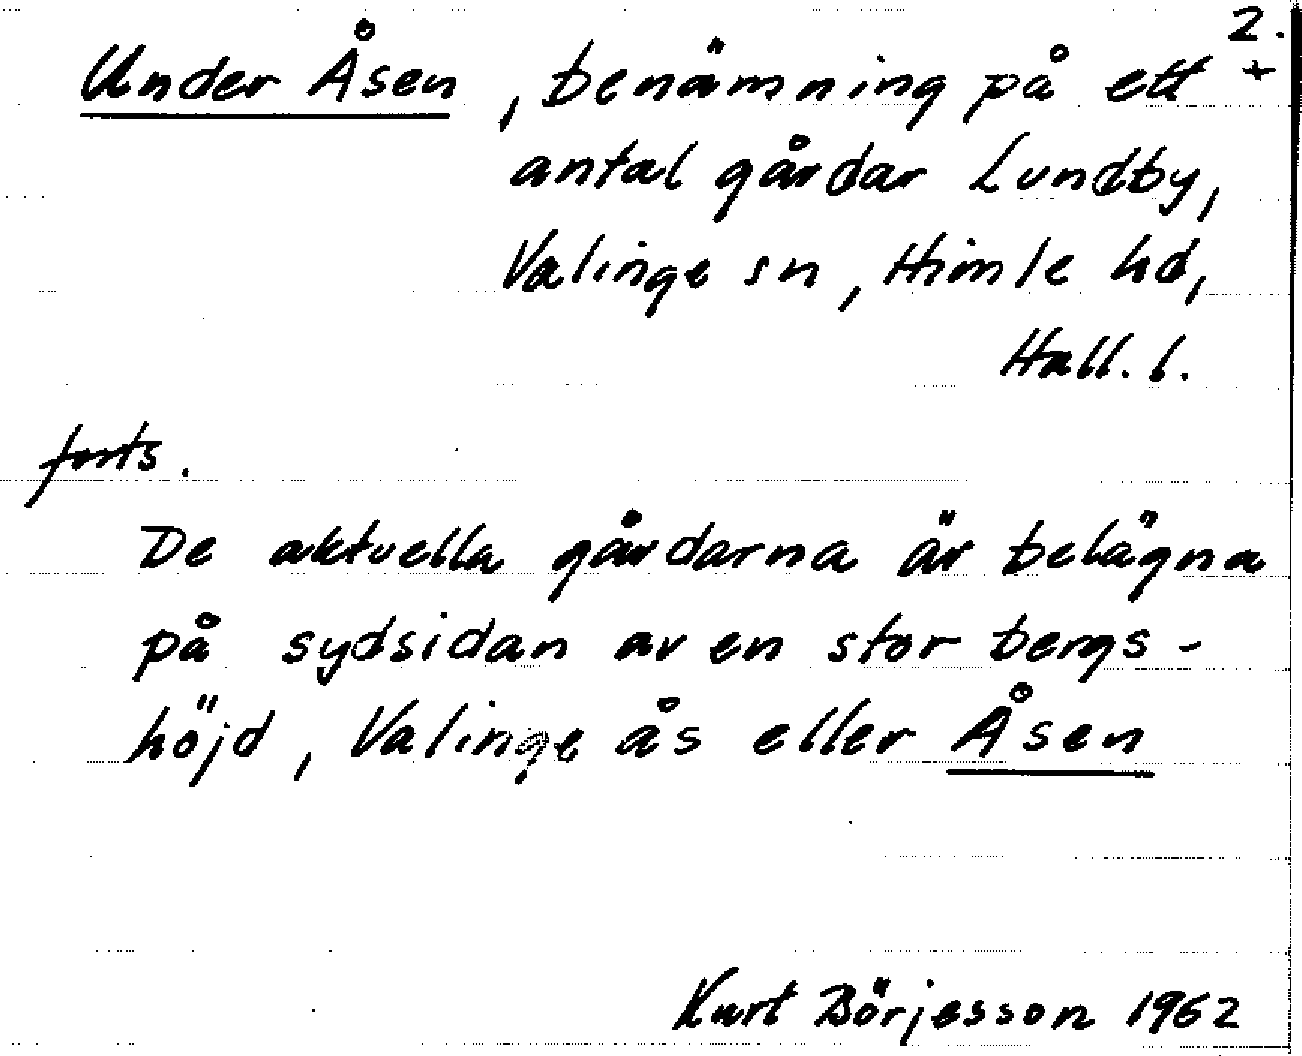 2.
Under Åsen, benämning på ett +
antal gårdar Lundby,
Valinge sn, Himle hd,
Hall. l.
forts.
De aktuella gårdarna är belägna
på sydsidan av en stor bergs-
höjd, Valinge ås eller Åsen
Kurt Börjesson 1962